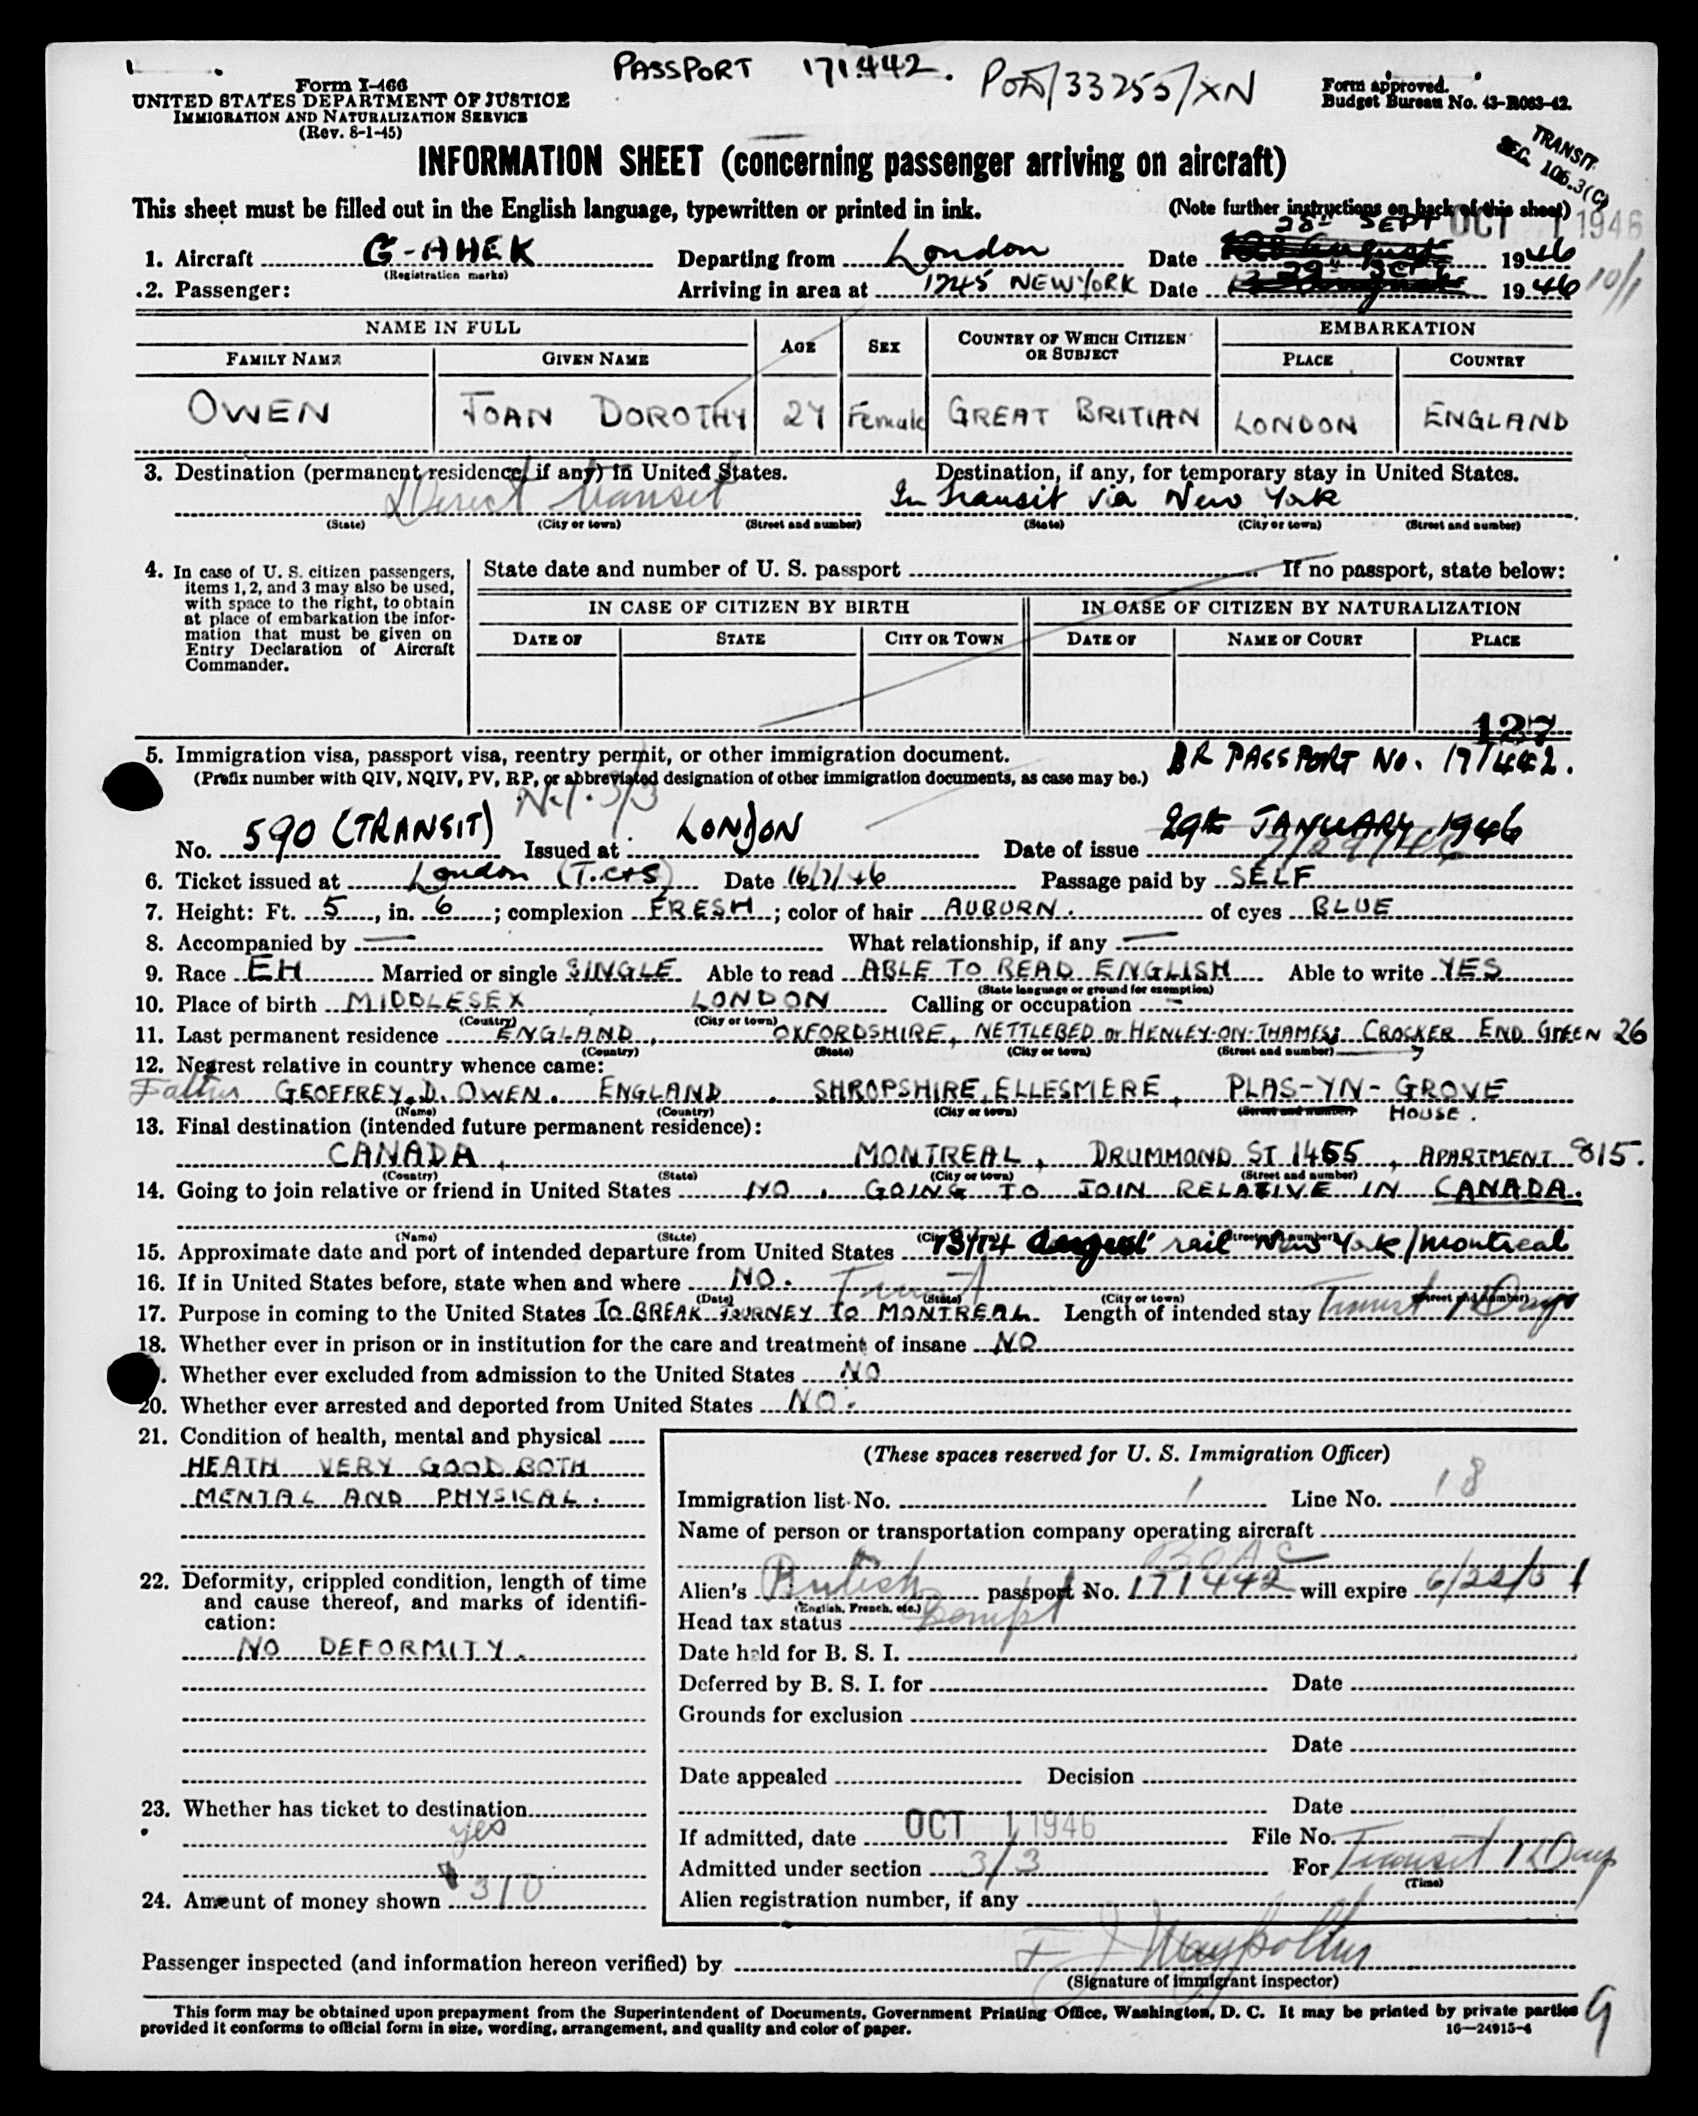 PASSPORT 171442. /33255/XN
Form I-466
UNITED STATES DEPARTMENT OF JUSTICE
IMMIGRATION AND NATURALIZATION SERVICE
(Rev. 8-1-45)
Form approved.
Budget Bureau No. 43-R063-42.
TRANSIT
SEC. 106.3(C)
INFORMATION SHEET (concerning passenger arriving on aircraft)
This sheet must be filled out in the English language, typewritten or printed in ink. (Note further instructions on back of this sheet)
OCT 1 1946
1. Aircraft G-AHEK Departing from London Date 28th SEPT 1946
(Registration marks)
.2. Passenger: Arriving in area at 1745 NEW YORK Date 29th SEPT 1946 10/1
NAME IN FULL AGE SEX COUNTRY OF WHICH CITIZEN OR SUBJECT EMBARKATION
FAMILY NAME GIVEN NAME PLACE COUNTRY
OWEN JOAN DOROTHY 24 Female GREAT BRITIAN LONDON ENGLAND
3. Destination (permanent residence, if any) in United States. Destination, if any, for temporary stay in United States.
Direct transit In transit via New York
(State) (City or town) (Street and number) (State) (City or town) (Street and number)
4. In case of U. S. citizen passengers, items 1, 2, and 3 may also be used, with space to the right, to obtain at place of embarkation the information that must be given on Entry Declaration of Aircraft Commander.
State date and number of U. S. passport If no passport, state below:
IN CASE OF CITIZEN BY BIRTH IN CASE OF CITIZEN BY NATURALIZATION
DATE OF STATE CITY OR TOWN DATE OF NAME OF COURT PLACE
127
5. Immigration visa, passport visa, reentry permit, or other immigration document. BR PASSPORT No. 171442.
(Prefix number with QIV, NQIV, PV, RP, or abbreviated designation of other immigration documents, as case may be.)
3/3
No. 590 (TRANSIT) Issued at LONDON Date of issue 29th JANUARY 1946
6. Ticket issued at London (T.C+S) Date 16/7/46 Passage paid by SELF
7. Height: Ft. 5, in. 6; complexion FRESH; color of hair AUBURN. of eyes BLUE
8. Accompanied by — What relationship, if any —
9. Race EH Married or single SINGLE Able to read ABLE TO READ ENGLISH Able to write YES
(State language or ground for exemption)
10. Place of birth MIDDLESEX LONDON Calling or occupation -
(Country) (City or town)
11. Last permanent residence ENGLAND, OXFORDSHIRE, NETTLEBED or HENLEY-ON-THAMES; CROCKER END GREEN 26
(Country) (State) (City or town) (Street and number)
12. Nearest relative in country whence came:
Father GEOFFREY. D. OWEN. ENGLAND. SHROPSHIRE, ELLESMERE, PLAS-YN-GROVE
(Name) (Country) (City or town) (Street and number) HOUSE.
13. Final destination (intended future permanent residence):
CANADA, MONTREAL, DRUMMOND ST 1455, APARTMENT 815.
(Country) (State) (City or town) (Street and number)
14. Going to join relative or friend in United States NO. GOING TO JOIN RELATIVE IN CANADA.
(Name) (State) (City or town) (Street and number)
15. Approximate date and port of intended departure from United States 13/14 August rail New York/Montreal
16. If in United States before, state when and where NO.
(Date) (State) (City or town) (Street and number)
17. Purpose in coming to the United States TO BREAK JOURNEY TO MONTREAL. Length of intended stay Transit 1 Day
18. Whether ever in prison or in institution for the care and treatment of insane NO
. Whether ever excluded from admission to the United States NO
20. Whether ever arrested and deported from United States NO.
21. Condition of health, mental and physical
HEATH VERY GOOD BOTH
MENTAL AND PHYSICAL.
22. Deformity, crippled condition, length of time and cause thereof, and marks of identification:
NO DEFORMITY.
23. Whether has ticket to destination
yes
24. Amount of money shown 310
(These spaces reserved for U. S. Immigration Officer)
Immigration list No. 1 Line No. 18
Name of person or transportation company operating aircraft
BOAC
Alien's British passport No. 171442 will expire 6/22/51
(English, French, etc.)
Head tax status Exempt
Date held for B. S. I.
Deferred by B. S. I. for Date
Grounds for exclusion
Date
Date appealed Decision
Date
If admitted, date OCT 1 1946 File No.
Admitted under section 3/3 For Transit 1 Day
(Time)
Alien registration number, if any
Passenger inspected (and information hereon verified) by
(Signature of immigrant inspector)
This form may be obtained upon prepayment from the Superintendent of Documents, Government Printing Office, Washington, D. C. It may be printed by private parties
provided it conforms to official form in size, wording, arrangement, and quality and color of paper. 16—24915-4
9